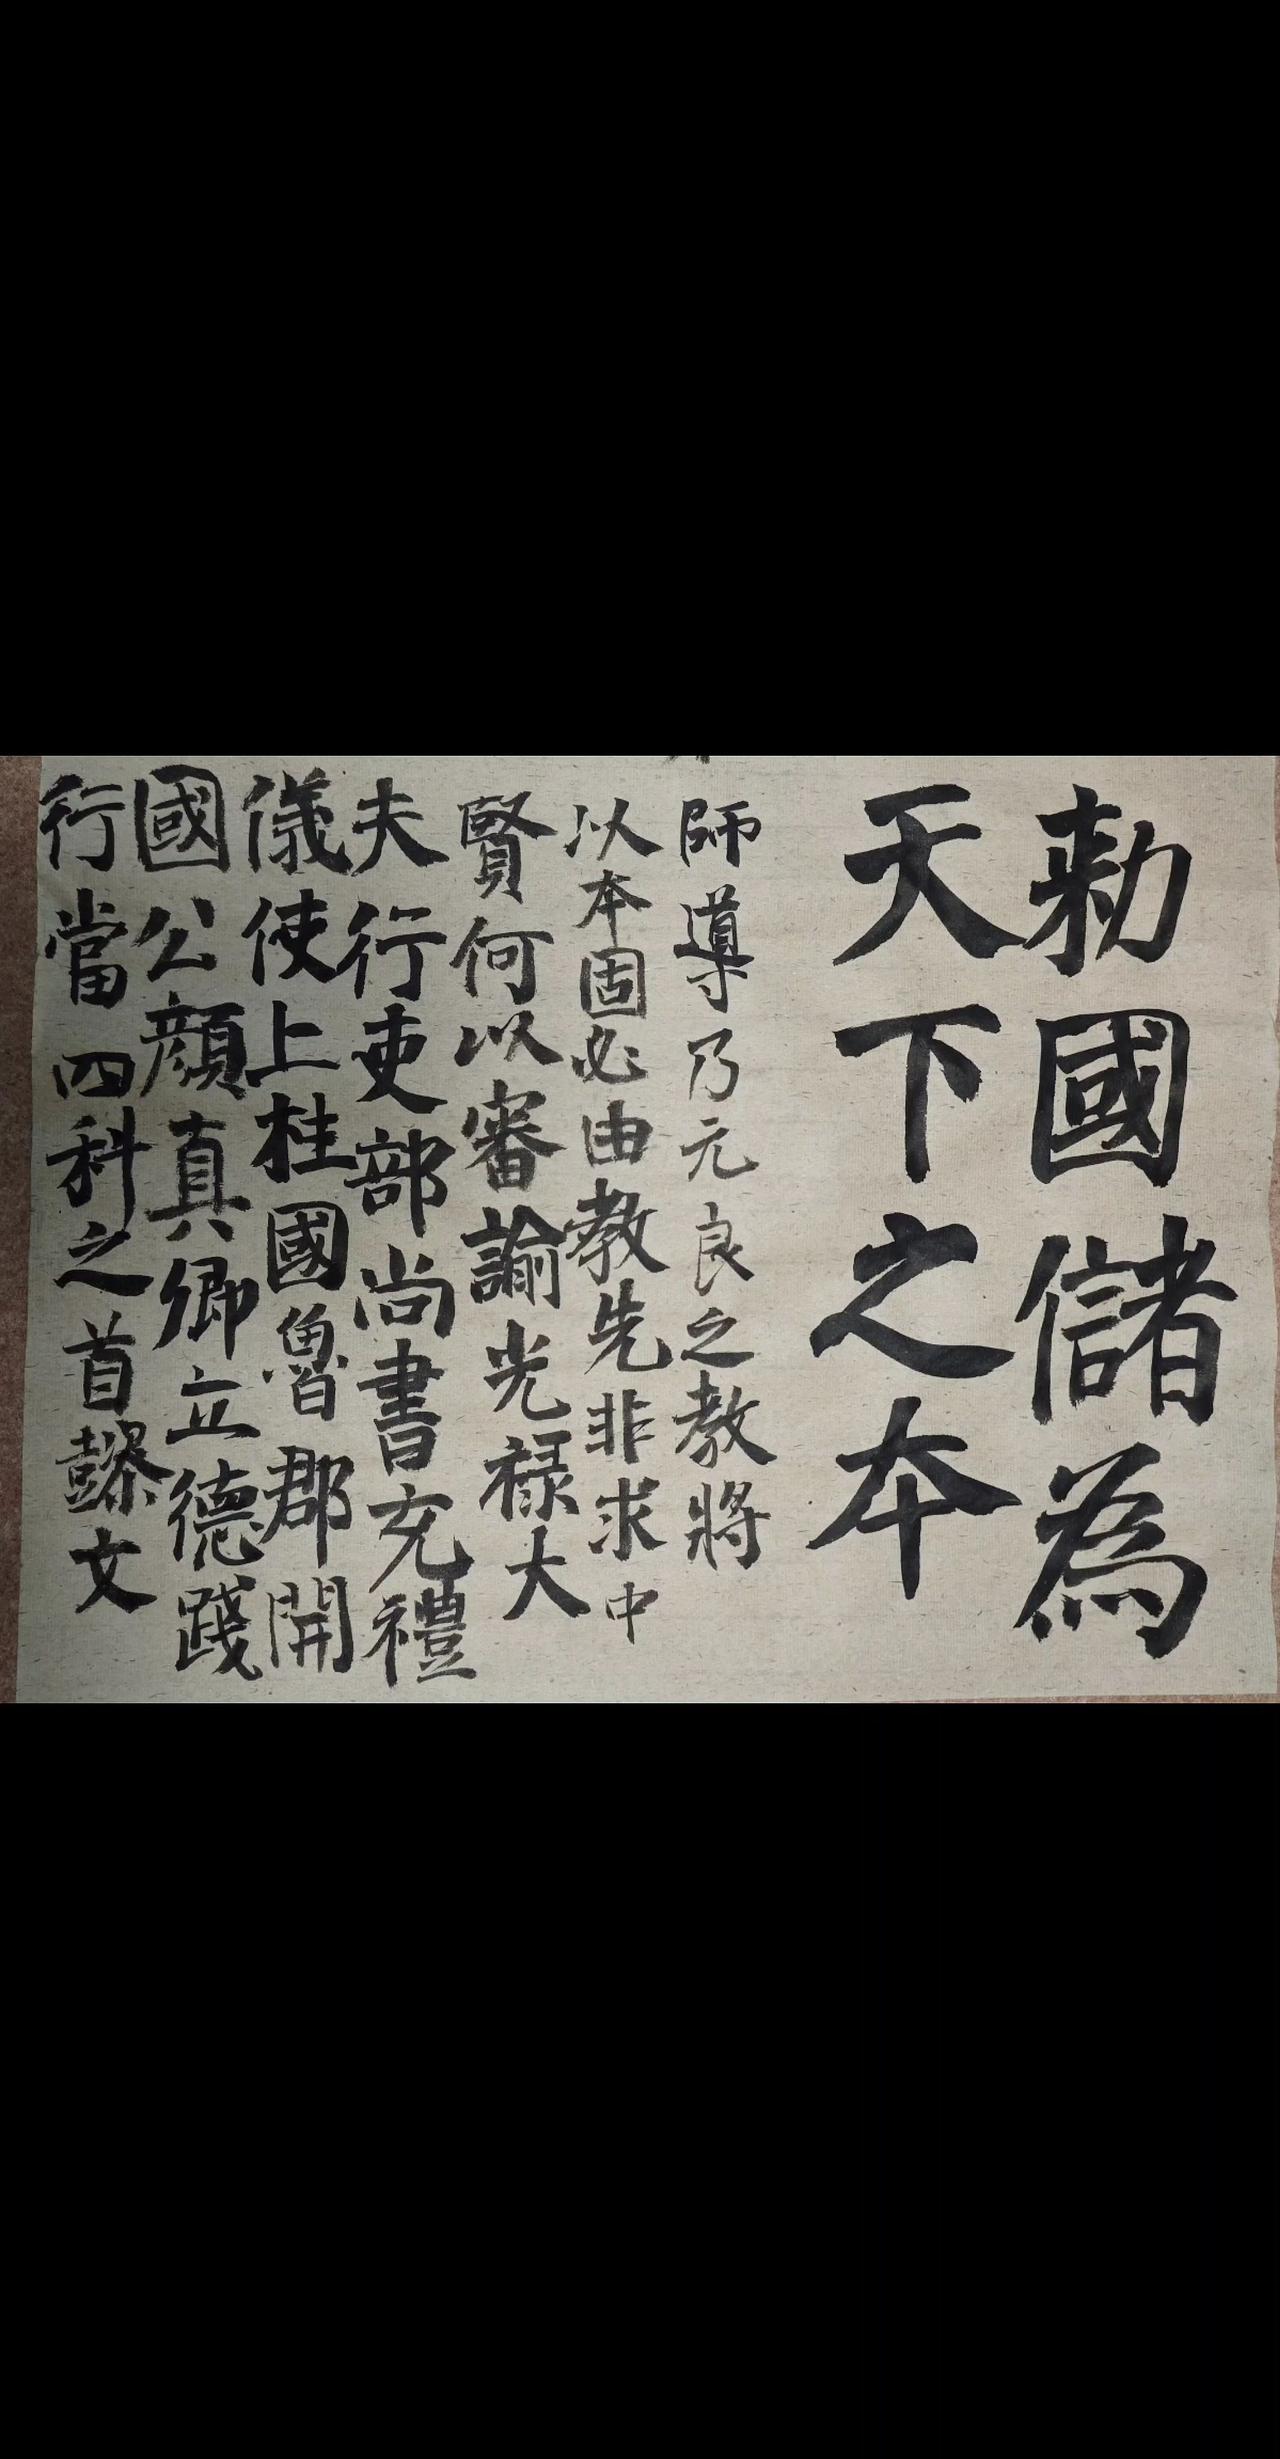 勅國儲為
天下之本
師導乃元良之教將
以本固必由教先非求中
賢何以審諭光禄大
夫行吏部尚書充禮
儀使上柱國魯郡開
國公顔真卿立德踐
行當四科之首懿文